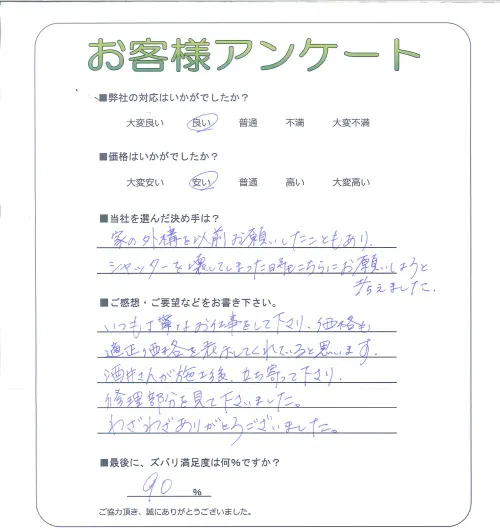 お客様アンケート
■弊社の対応はいかがでしたか?
大変良い 良い 普通 不満 大変不満
■価格はいかがでしたか?
大変安い 安い 普通 高い 大変高い
■当社を選んだ決め手は?
家の外構を以前お願いしたこともあり、
シャッターを壊してしまった時もこちらにお願いしようと
考えました。
■ご感想・ご要望などをお書き下さい。
いつも丁寧なお仕事をして下さり、価格も
適正価格を表示してくれていると思います。
酒井さんが施工後、立ち寄って下さり、
修理部分を見て下さいました。
わざわざありがとうございました。
■最後に、ズバリ満足度は何%ですか?
90 %
ご協力頂き、誠にありがとうございました。